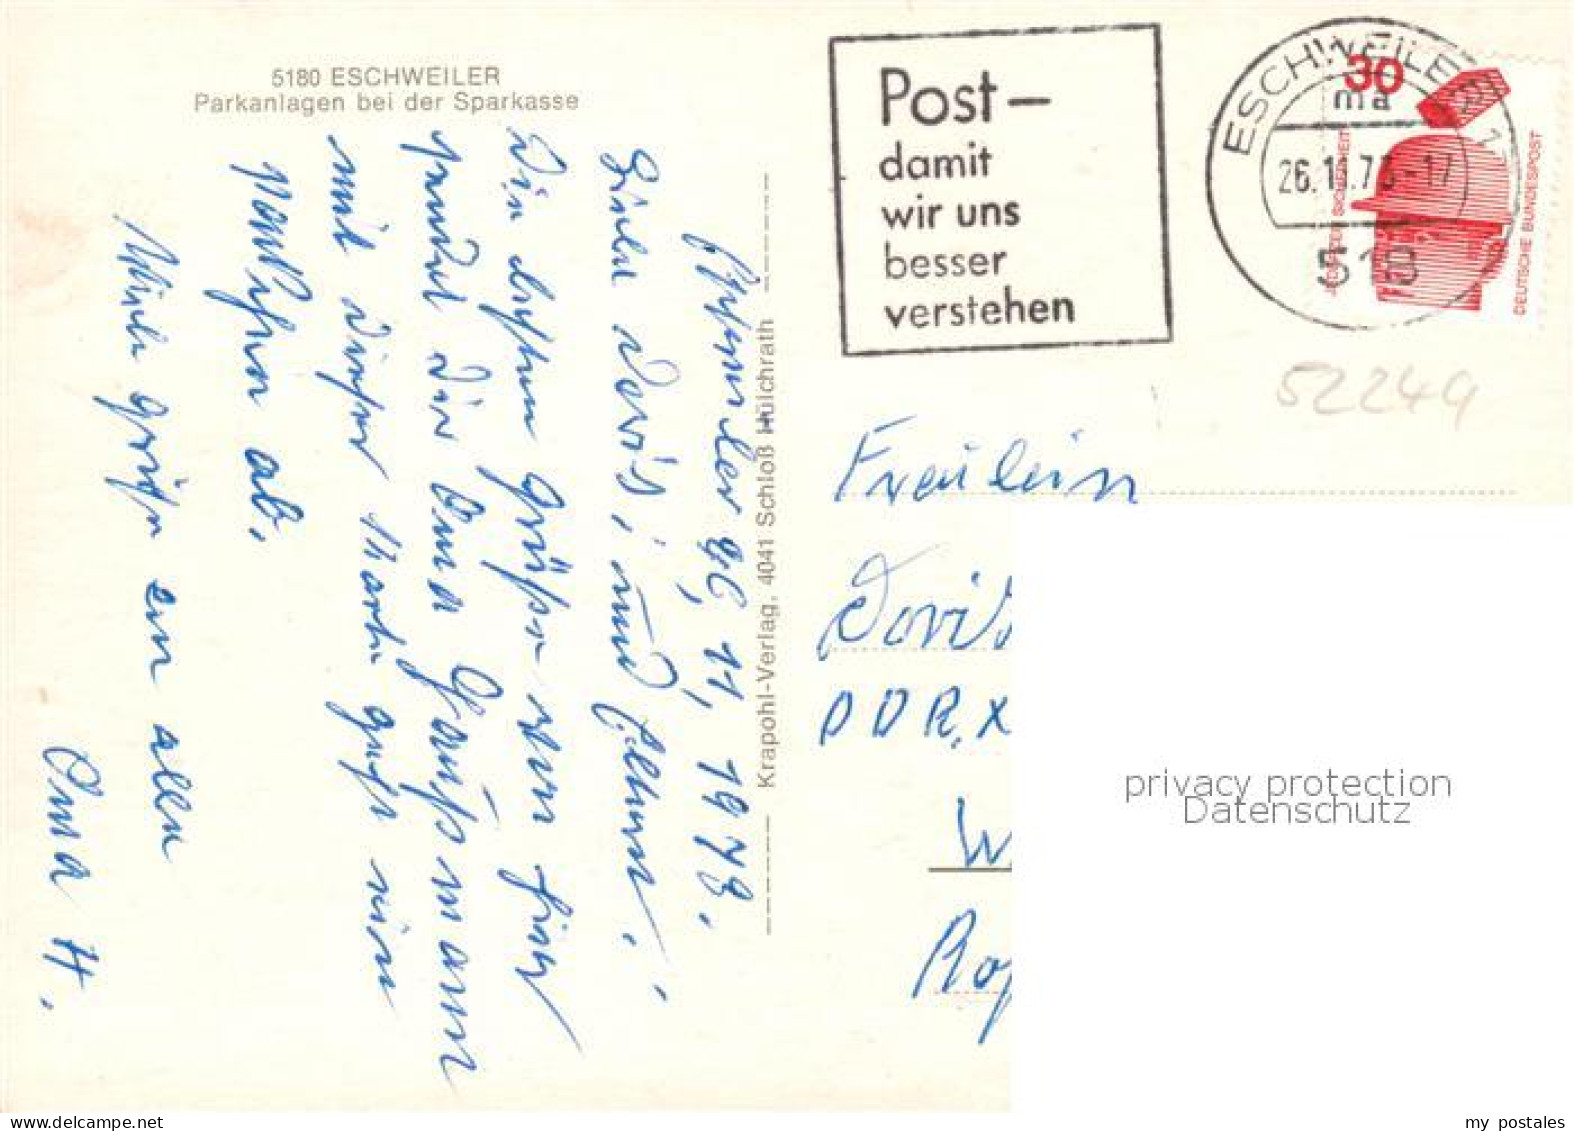 5180 ESCHWEILER
Parkanlagen bei der Sparkasse
Eschweiler 26, 11, 1973.
Liebe Doris, und Eltern!
Die besten Grüße von hier
sendet dir Oma Hausmann
mit dieser Karte geht ein
Päckchen ab.
Viele Grüße an alle
Oma H.
Krapohl-Verlag, 4041 Schloß Hülchrath
Post –
damit
wir uns
besser
verstehen
ESCHWEILER 1
ma
26.11.73-17
518
30
JEDERZEIT SICHERHEIT
DEUTSCHE BUNDESPOST
52249
Fräulein
Doris
DDR. X
W
privacy protection
Datenschutz
www.delcampe.net
my postales